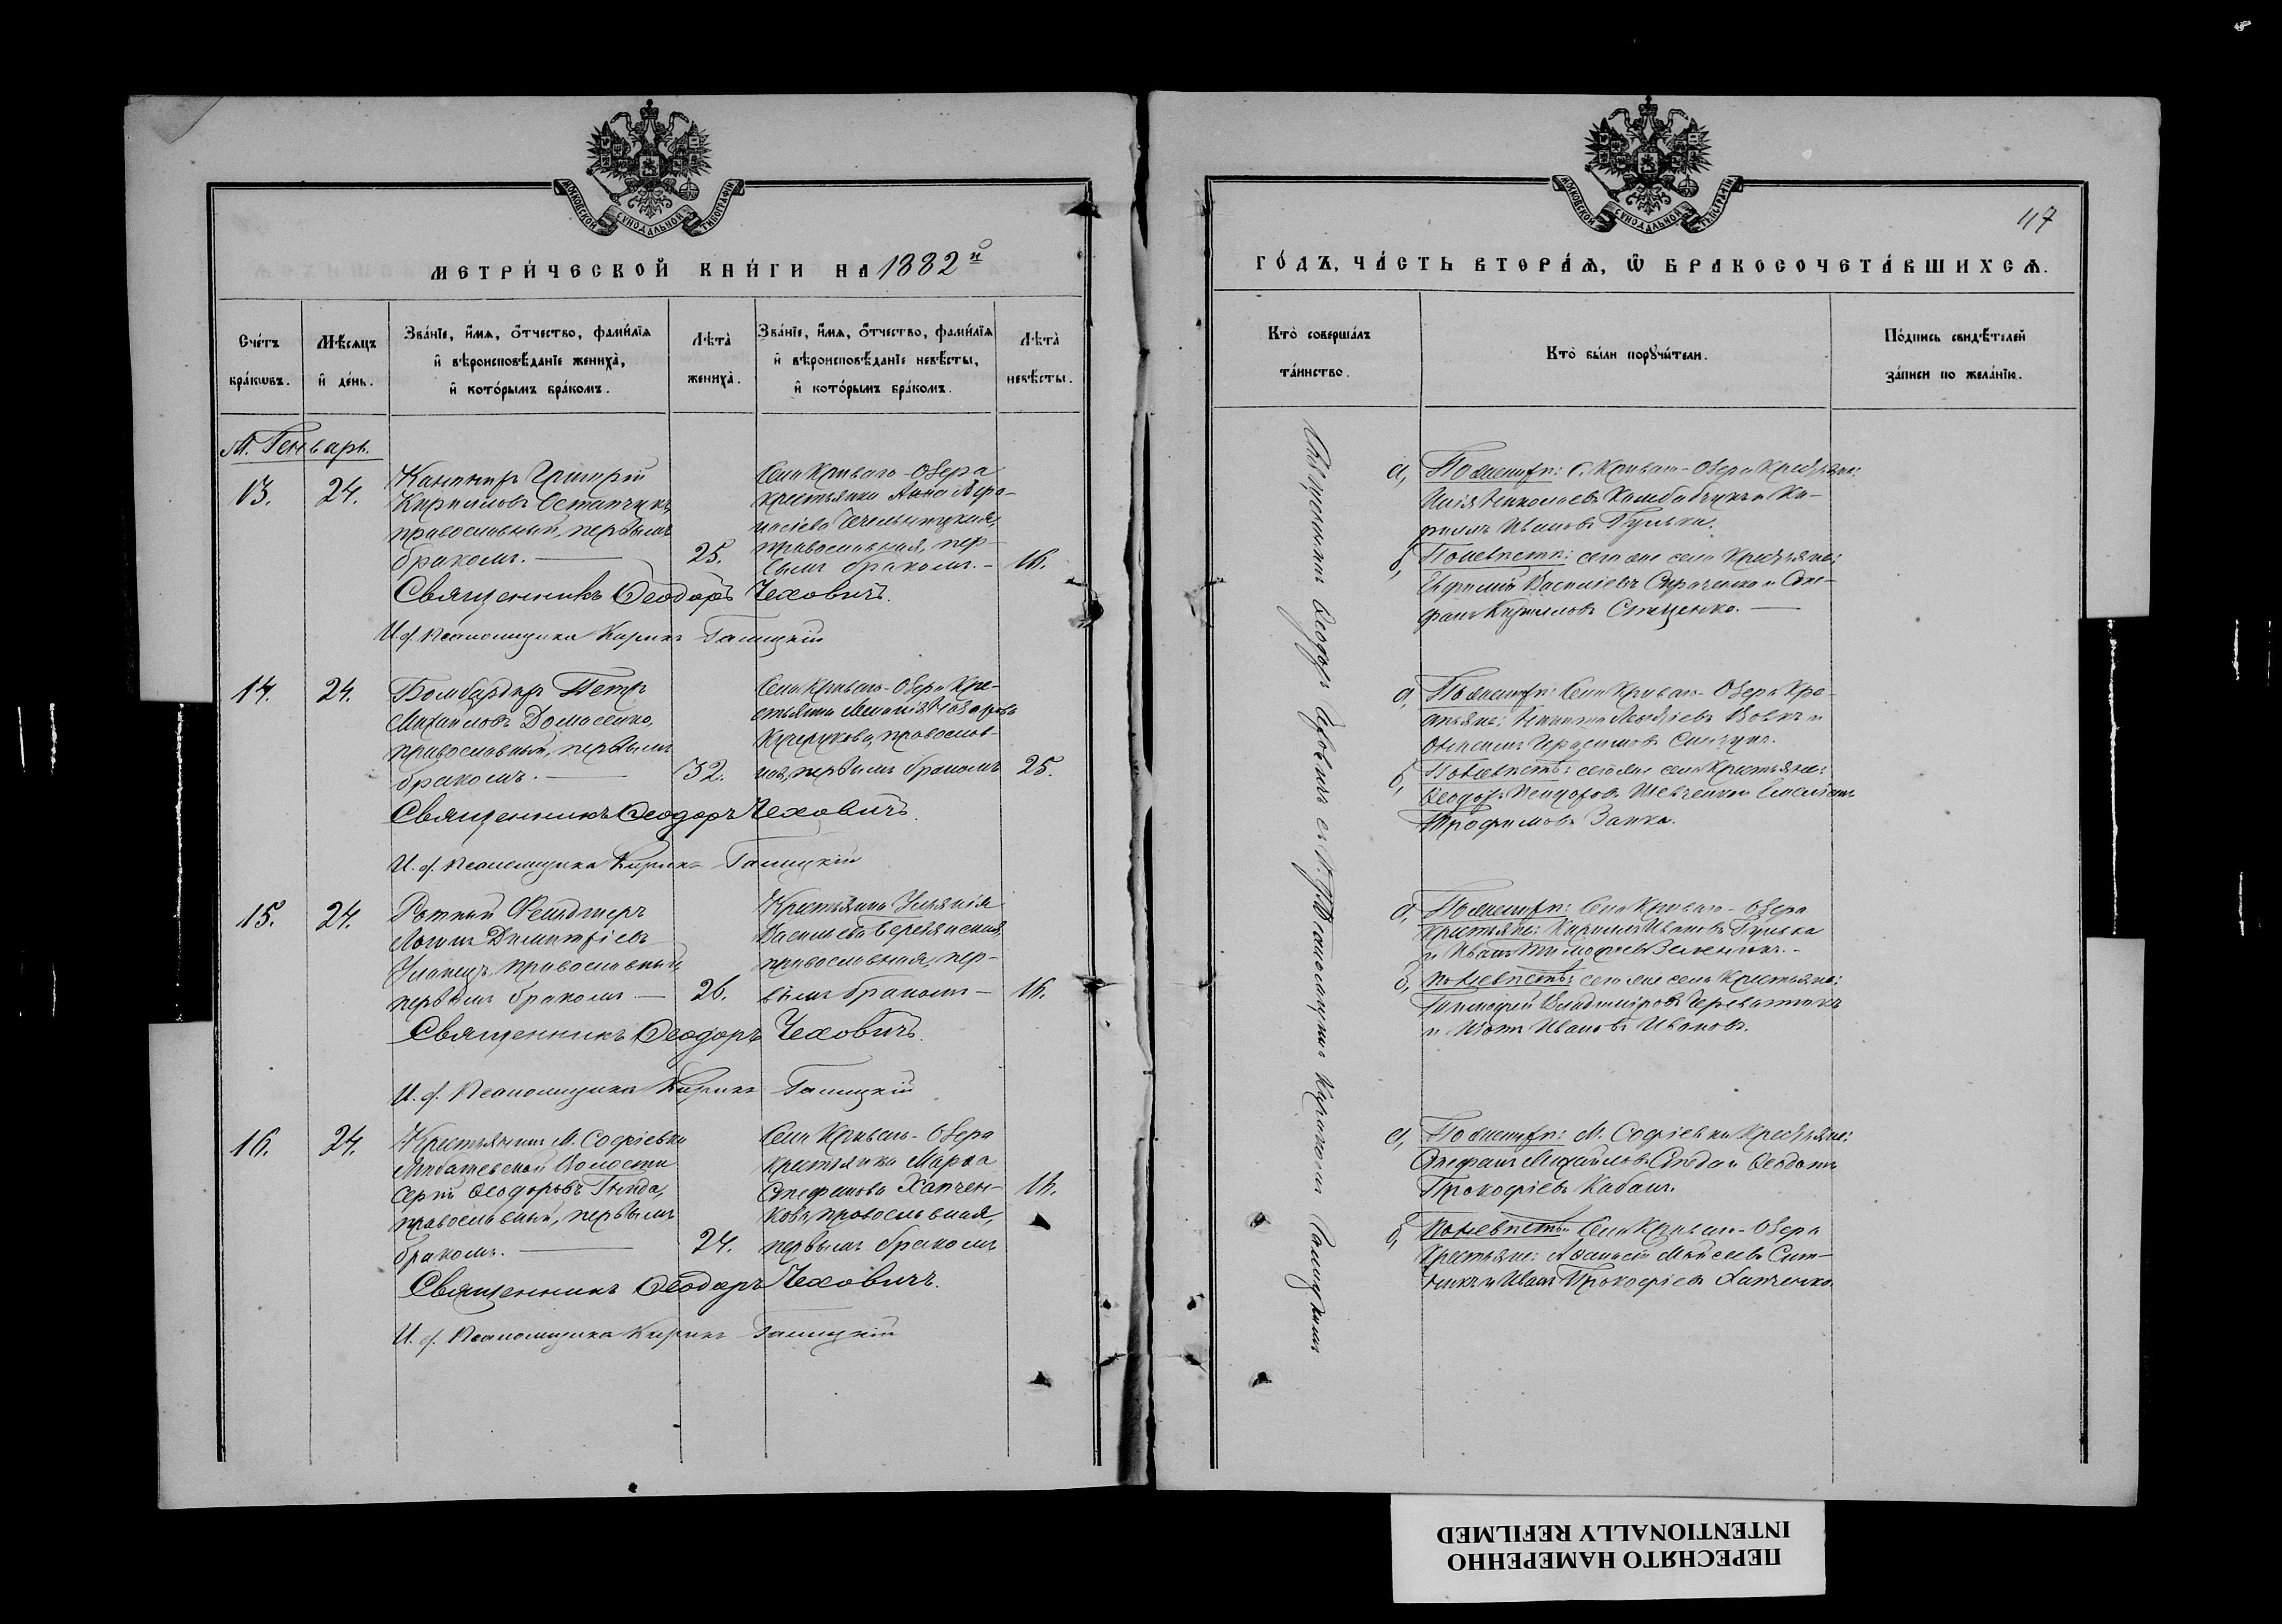 МОСКОВСКОЙ СѴНОДАЛЬНОЙ ТИПОГРАФІИ
МЕТРИ́ЧЕСКОЙ КНИ́ГИ НА 1882й
Сче́тъ бра́кωвъ.
Мѣ́сяцъ и҆ де́нь.
Зва́нїе, и҆́мѧ, ѻ҆́тчество, фами́лїѧ
и҆ вѣроисповѣ́данїе жениха̀,
и҆ кото́рымъ бра́комъ.
Лѣта̀ жениха̀.
Зва́нїе, и҆́мѧ, ѻ҆́тчество, фами́лїѧ
и҆ вѣроисповѣ́данїе невѣ́сты,
и҆ кото́рымъ бра́комъ.
Лѣта̀ невѣ́сты.
М. Генварь.
13.
24.
Григорій
Кириловъ Остапчукъ,
православный, первымъ
бракомъ.
25.
Села Криваго-Озера
крестьянка Анна
православная, пер-
вымъ бракомъ.
16.
Священникъ Ѳеодоръ Чеховичъ.
И. д. Псаломщика Кирикъ Галицкій
14.
24.
Бомбардиръ Петръ
Михаиловъ Домосенко,
православный, первымъ
бракомъ.
32.
Села Криваго-Озера Кре-
стьянка Назарова
Кучерукова, православ-
ная, первымъ бракомъ
25.
Священникъ Ѳеодоръ Чеховичъ.
И. д. Псаломщика Кирикъ Галицкій
15.
24.
Ротный Фельдшеръ
Логинъ Димитріевъ
Уланецъ, православный,
первымъ бракомъ
26.
Крестьянка Ульянія
Васильева
православная, пер-
вымъ бракомъ
16.
Священникъ Ѳеодоръ Чеховичъ.
И. д. Псаломщика Кирикъ Галицкій
16.
24.
Крестьянинъ М. Софіевки
Любашевской Волости
Сергій Ѳеодоровъ Гнида,
православный, первымъ
бракомъ.
24.
Села Криваго-Озера
крестьянка Марѳа
Стефанова Хапчен-
кова, православная,
первымъ бракомъ
16.
Священникъ Ѳеодоръ Чеховичъ.
И. д. Псаломщика Кирикъ Галицкій
МОСКОВСКОЙ СѴНОДАЛЬНОЙ ТИПОГРАФІИ
117
ГО́ДЪ, ЧА́СТЬ ВТОРА́Ѧ, Ѽ БРАКОСОЧЕТА́ВШИХСѦ.
Кто̀ соверша́лъ та́инство.
Кто̀ бы́ли порꙋчи́тели.
По́дпись свидѣ́телей за́писи по жела́нїю.
Священникъ Ѳеодоръ Чеховичъ съ И. д. Псаломщика Кирикомъ Галицкимъ
а, По женихѣ: с. Криваго-Озера Крестьяне:
Илія Николаевъ и Ки-
рилъ Ивановъ Гулька.
б, По невѣстѣ: того же села Крестьяне:
Ефимій Василіевъ и Сте-
фанъ Кириловъ Стеценко.
а, По женихѣ: Села Криваго-Озера Кре-
стьяне: Никита Вовкъ и
Герасимовъ
б, По невѣстѣ: того же села Крестьяне:
Ѳеодоръ Шевченко и
Трофимовъ Заика.
а, По женихѣ: Села Криваго-Озера
Крестьяне: Кирилъ Ивановъ Гулька
и Иванъ Тимофеевъ
б, По невѣстѣ: того же села Крестьяне:
Тимофей Владиміровъ Череватюкъ
и Ивановъ Ивановъ.
а, По женихѣ: М. Софіевки Крестьяне:
Стефанъ Михайловъ и Ѳеодотъ
Прокофіевъ Кабашъ.
б, По невѣстѣ: Села Криваго-Озера
Крестьяне: Аѳанасій Моисеевъ Сит-
никъ и Иванъ Прокофіевъ Хапченко.
ПЕРЕСНЯТО НАМЕРЕННО
INTENTIONALLY REFILMED